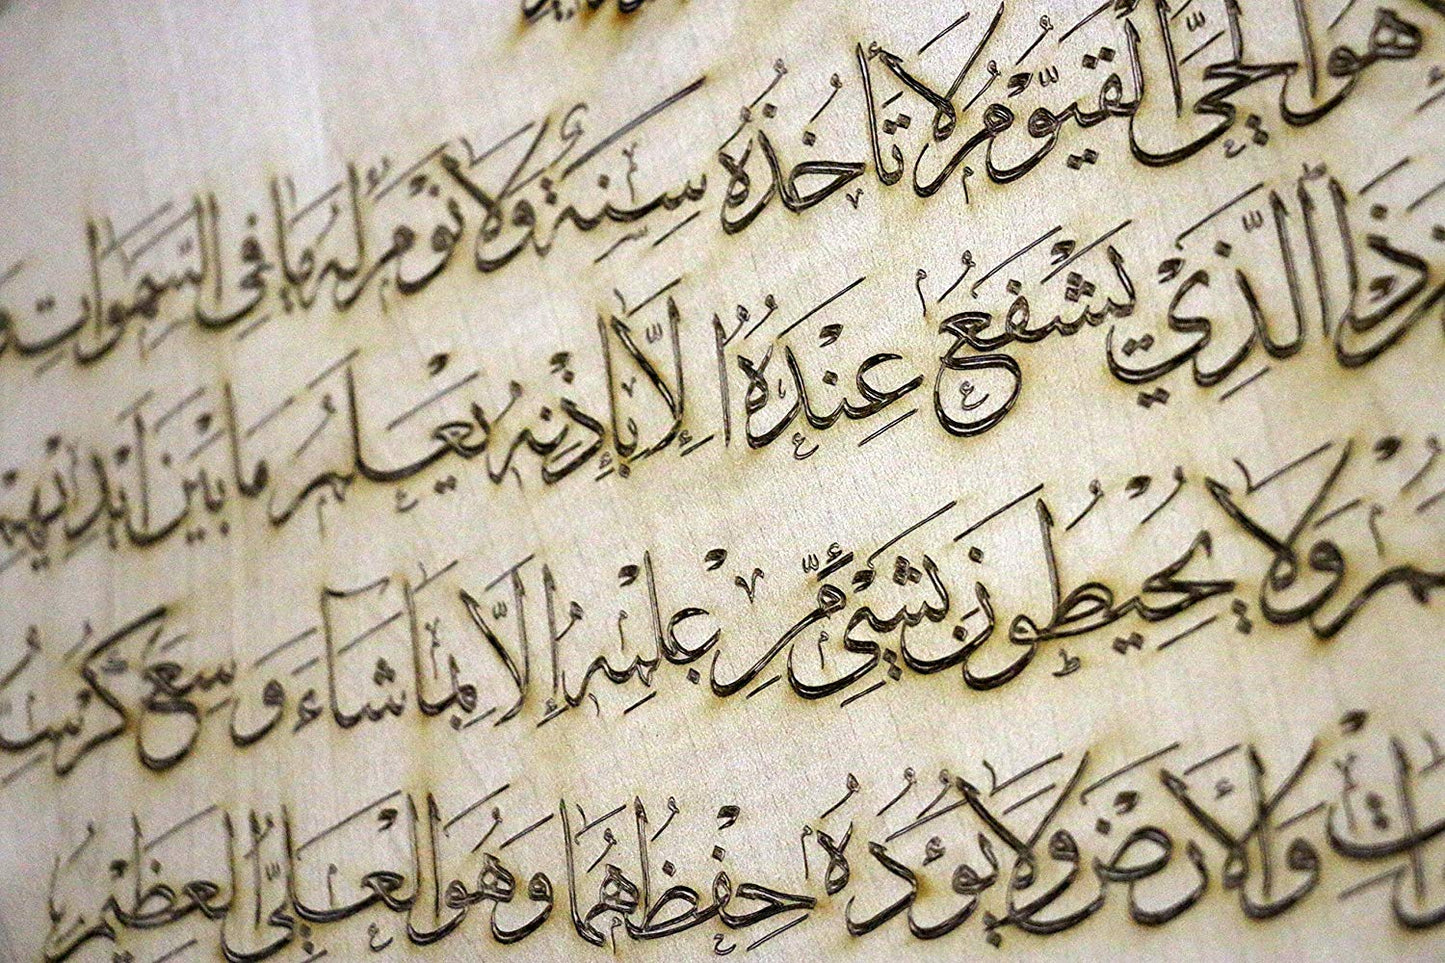 هُوَ الْحَيُّ الْقَيُّومُ لَا تَأْخُذُهُ سِنَةٌ وَلَا نَوْمٌ لَهُ مَا فِي السَّمَوَاتِ
ذَا الَّذِي يَشْفَعُ عِنْدَهُ إِلَّا بِإِذْنِهِ يَعْلَمُ مَا بَيْنَ أَيْدِيهِمْ
وَلَا يُحِيطُونَ بِشَيْءٍ مِنْ عِلْمِهِ إِلَّا بِمَا شَاءَ وَسِعَ
وَالْأَرْضَ وَلَا يَؤُدُهُ حِفْظُهُمَا وَهُوَ الْعَلِيُّ الْعَظِيمُ